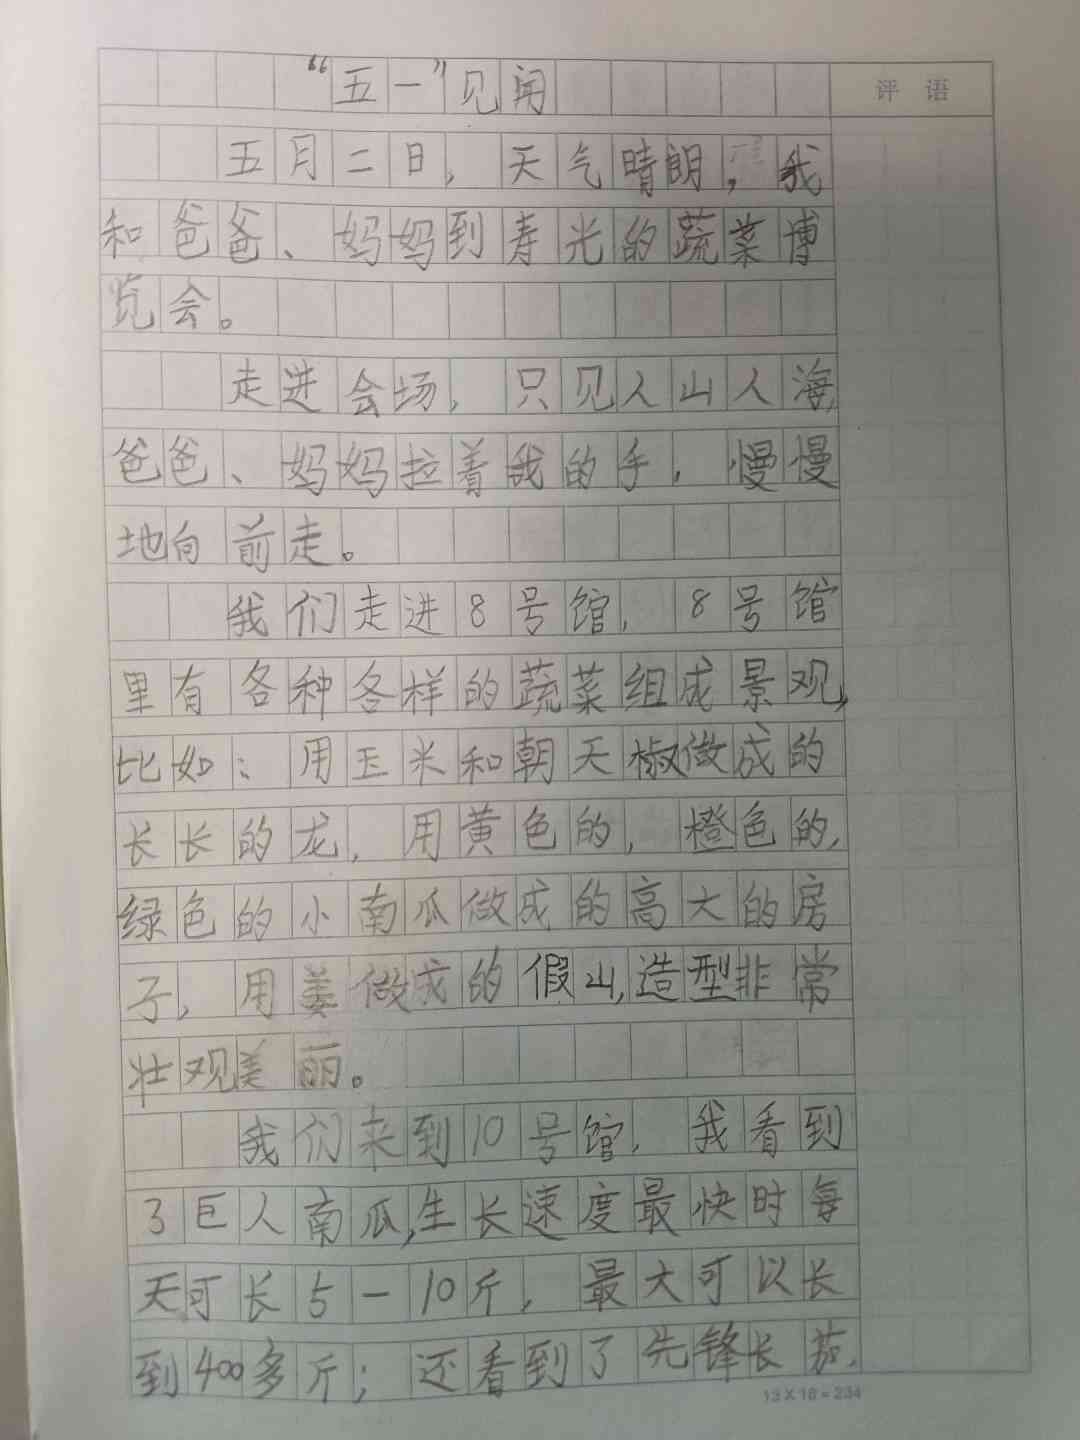 “五一”见闻
评语
五月二日，天气晴朗，我
和爸爸、妈妈到寿光的蔬菜博
览会。
走进会场，只见人山人海，
爸爸、妈妈拉着我的手，慢慢
地向前走。
我们走进8号馆，8号馆
里有各种各样的蔬菜组成景观，
比如：用玉米和朝天椒做成的
长长的龙，用黄色的，橙色的，
绿色的小南瓜做成的高大的房
子，用姜做成的假山，造型非常
壮观美丽。
我们来到10号馆，我看到
了巨人南瓜，生长速度最快时每
天可长5—10斤，最大可以长
到400多斤；还看到了先锋长茄，
13×18=234